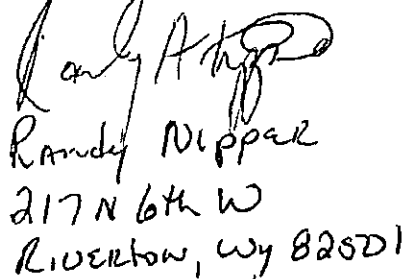 Randy A Nipper
Randy Nipper
217 N 6th W
Riverton, Wy 82501